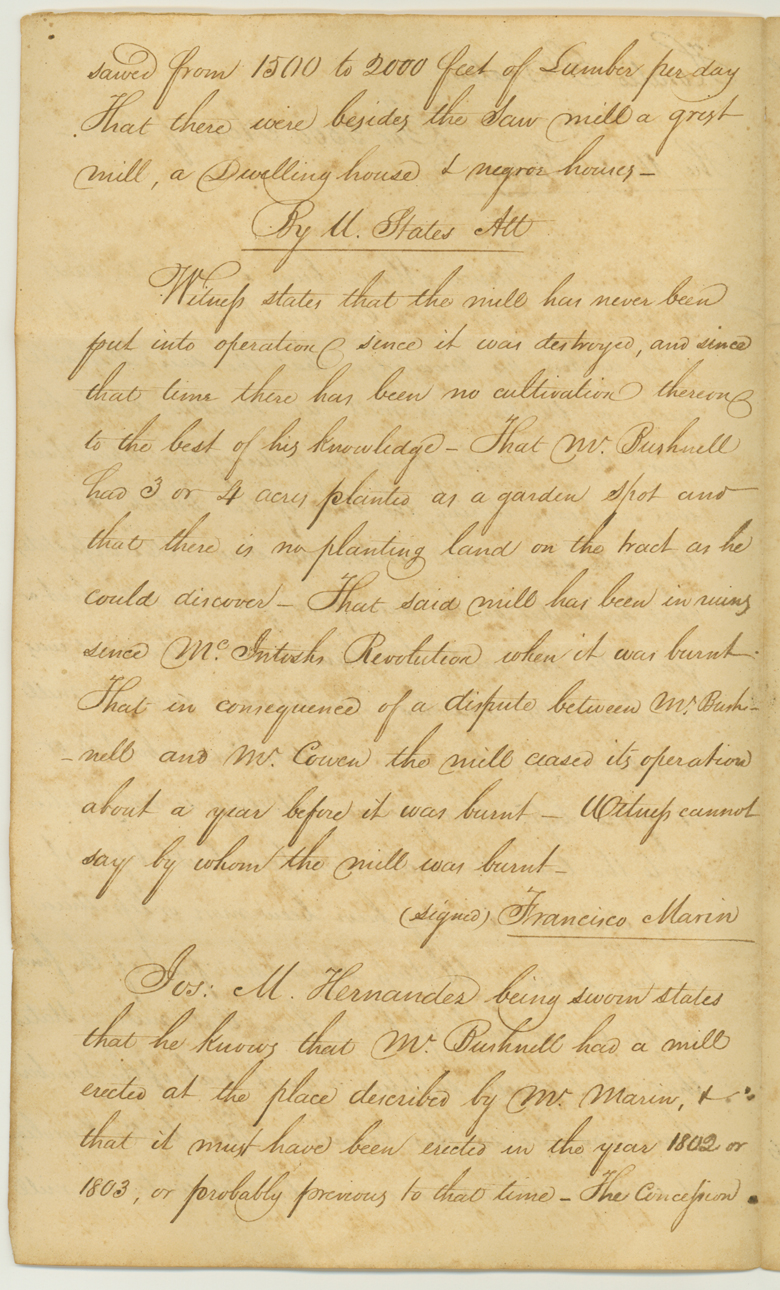 sawed from 1500 to 2000 feet of Lumber per day
That there were besides the Saw mill a grist
mill, a Dwelling house & negroe houses —
By U. States Att
Witness states that the mill has never been
put into operation since it was destroyed, and since
that time there has been no cultivation thereon
to the best of his knowledge — That Mr. Bushnell
had 3 or 4 acres planted as a garden spot and
that there is no planting land on the tract as he
could discover — That said mill has been in ruins
since Mc. Intoshs Revolution when it was burnt.
That in consequence of a dispute between Mr. Bush-
-nell and Mr. Cowen the mill ceased its operation
about a year before it was burnt — Witness cannot
say by whom the mill was burnt —
(signed) Francisco Marin
Jos: M. Hernandez being sworn states
that he knows that Mr. Bushnell had a mill
erected at the place described by Mr. Marin, &
that it must have been erected in the year 1802 or
1803, or probably previous to that time — The Concession